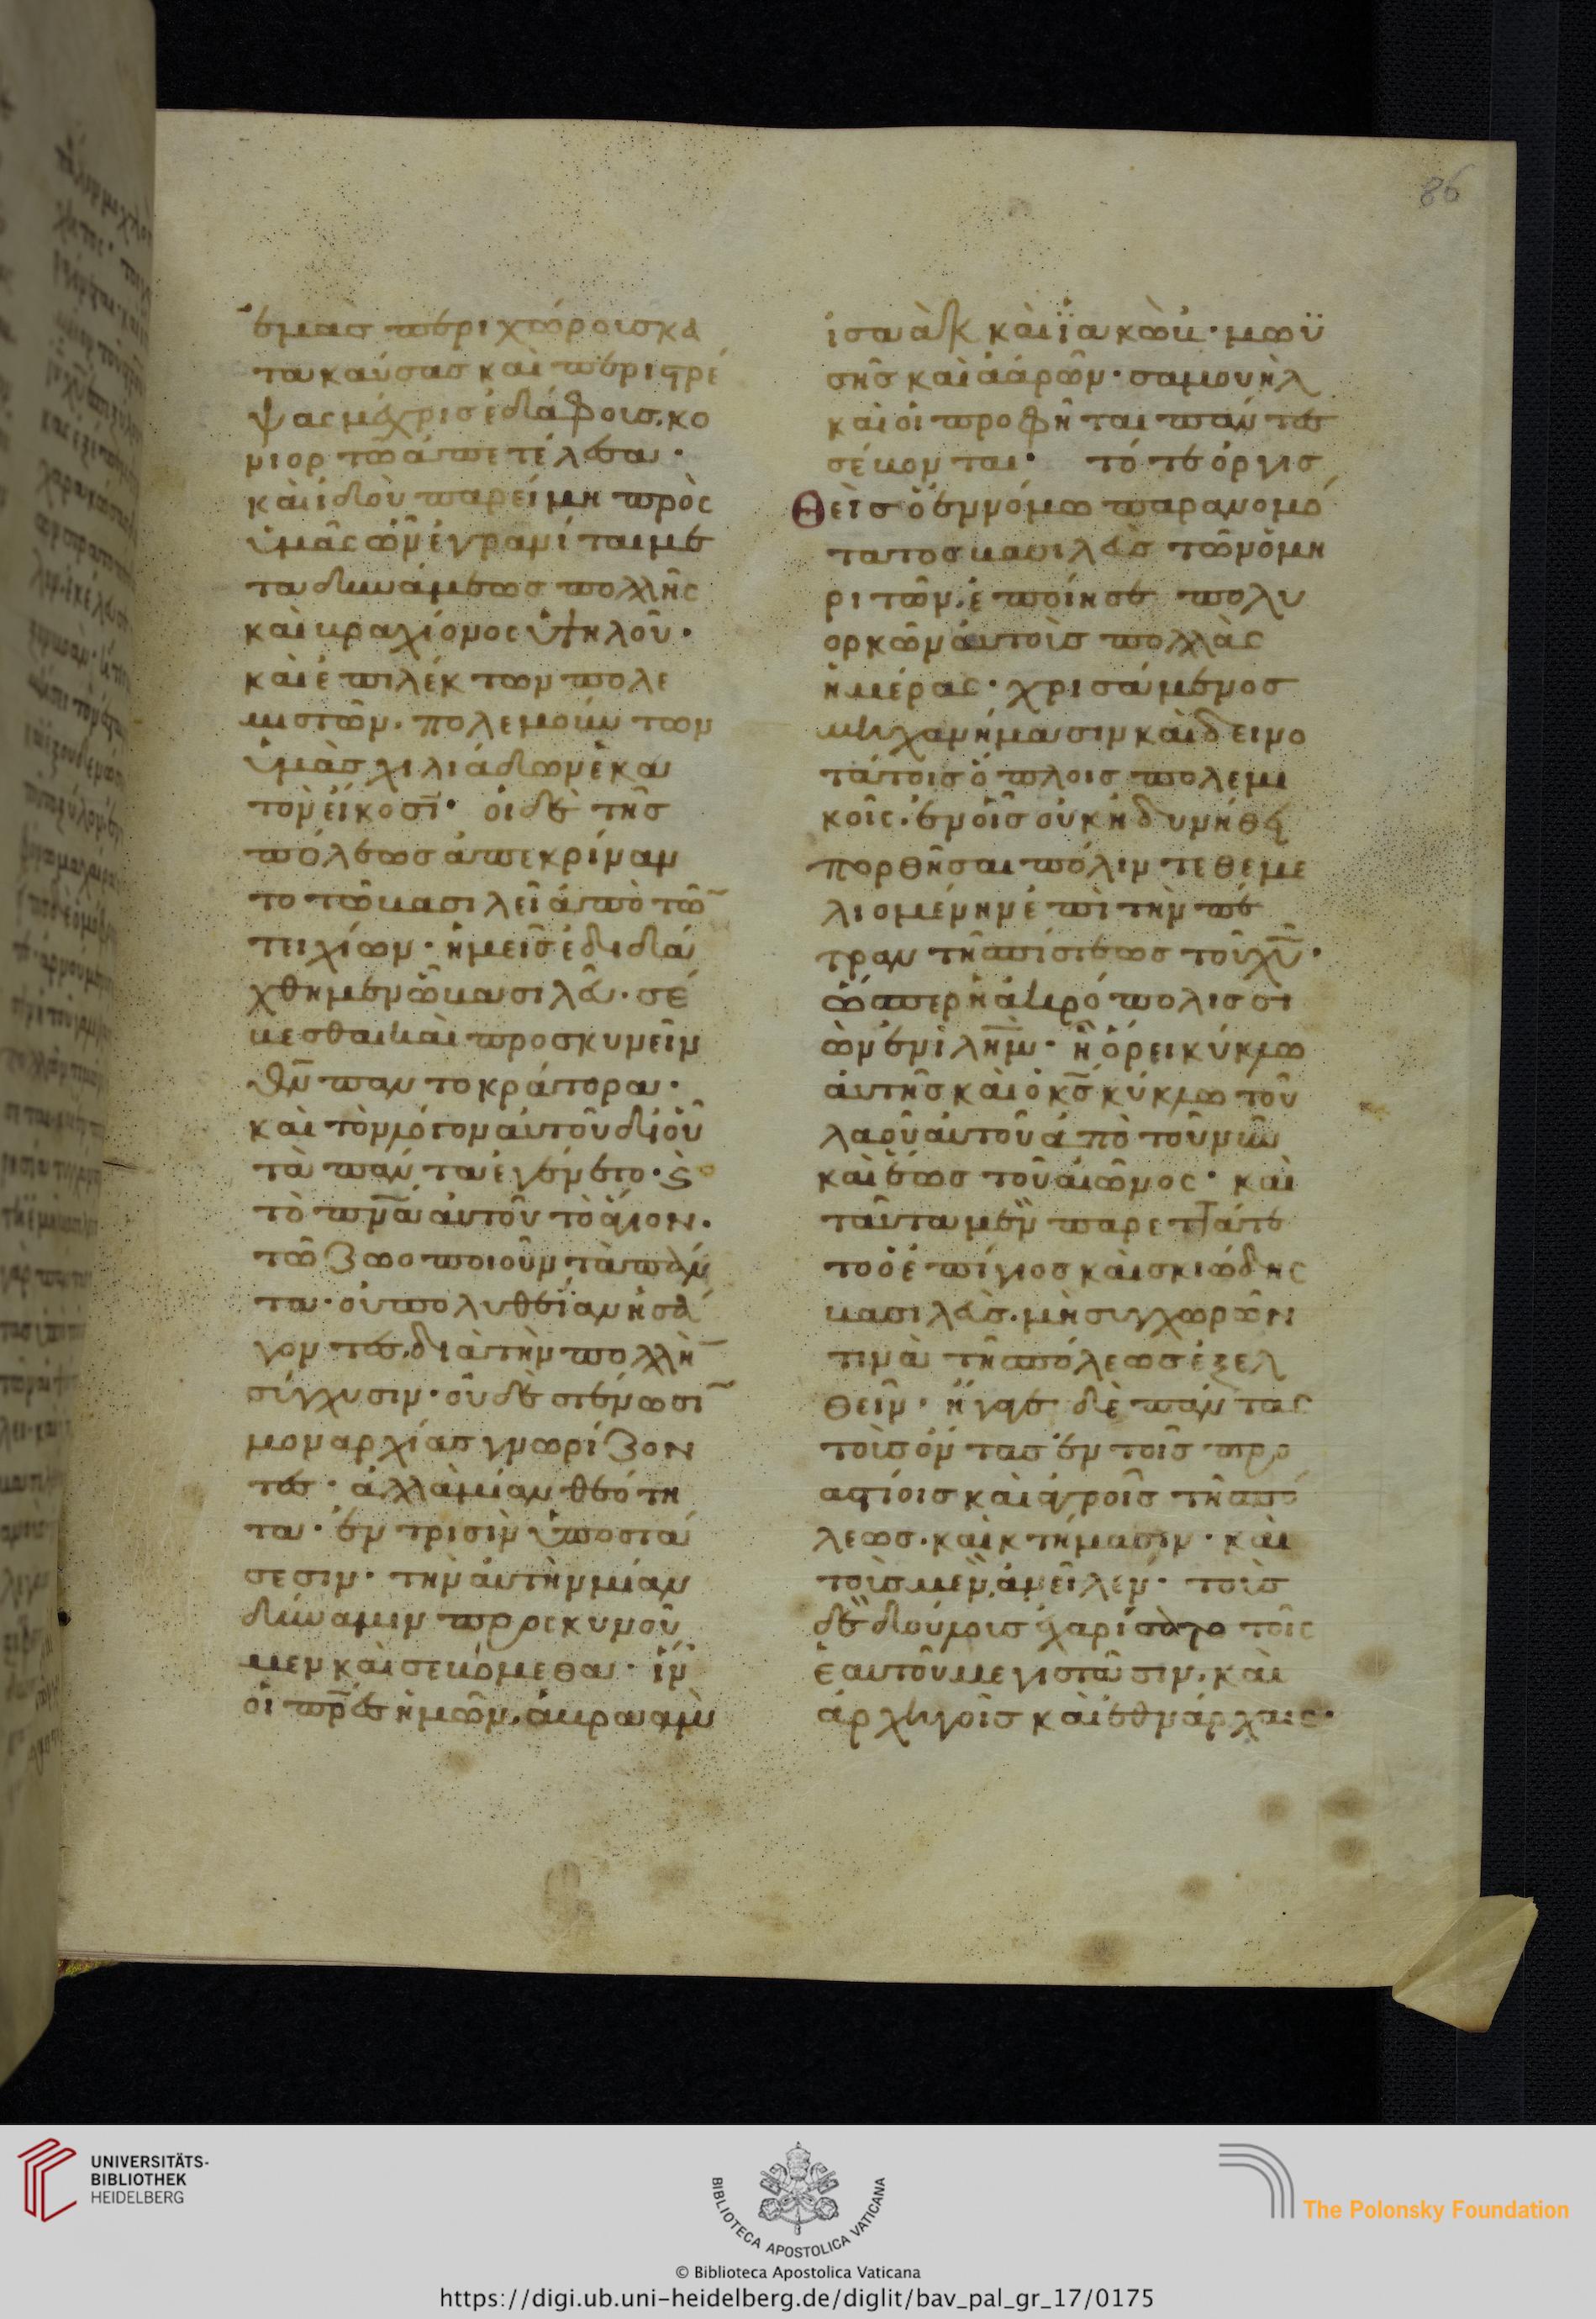 86
ἐμὰσ περιχώροισ κα
τακαύσασ καὶ περιτρέ
ψας μέχρισ ἐδάφουσ. κο
νιορτῶ ἀπετέλεσα·
καὶ ἰδοὺ παρείμη πρὸς
ὑμᾶς ὧν ἐγραψί ται με
τα δυνάμεωσ πολλῆς
καὶ βραχίονος ὑψηλοῦ·
καὶ ἐπιλέκτων πολε
μιστῶν. πολεμούντων
ὑμὰσ χιλιάδων ἑκα
τὸν εἴκοσι· οἱ δὲ τῆσ
πόλεωσ ἀπεκρίναν
το τῶ βασιλεῖ ἀπὸ τῶ
τειχίων· ἡμεῖσ ἐδιδά
χθημεν ὦ βασιλεῦ. σέ
βεσθαι καὶ προσκυνεῖν
θν παντοκράτορα·
καὶ τὸν λόγον αὐτοῦ δι οὗ
τὰ πάντα ἐγένετο· ϗ
τὸ πνα αὐτοῦ τὸ ἅγιον.
τῶ ζωοποιοῦν τὰ πάν
τα· οὐ πολυθεΐαν ἡσά
γοντεσ. διὰ τὴν πολλὴ
σύγχυσιν· οὐδὲ στενωσι
μοναρχίασ γνωρίζον
τεσ· ἀλλὰ μίαν θεότη
τα· ἐν τρισὶν ὑποστά
σεσιν· τὴν αὐτὴν μίαν
δύναμιν προσκυνοῦ
μεν καὶ σεβόμεθα· ἣν
οἱ πρεσ ἡμῶν. ἀβραὰμ
ἰσαὰκ καὶ ϊακὼβ· μωϋ
σῆσ καὶ ἀάρῶν· σαμουὴλ
καὶ οἱ προφῆται πάντεσ
σέβονται· τότε ὀργισ
Θεὶσ ὁ ἐννόμω παρανομό
τατοσ βασιλεὺσ τῶν ὁμη
ριτῶν. ἐποίησε πολυ
ορκῶν αὐτοὶσ πολλὰς
ἡμέρας· χρισάμενοσ
μηχανήμασιν καὶ δεινο
τάτοισ ὅπλοισ πολεμι
κοῖς. ἐν οἷσ οὐκ ἠδυνήθη
πορθῆσαι πόλιν τεθεμε
λισμένην ἐπὶ τὴν πέ
τραν τῆσ πίστεωσ τοῦ χυ·
ὥσπερ ἡ ἀκρόπολισ σι
ὼν ἐν ιλημ· ἧ ὄρει κύκλω
αὐτῆσ καὶ ὁ κσ κύκλω τοῦ
λαοῦ αὐτοῦ ἀπὸ τοῦ νῦν
καὶ ἕωσ τοῦ αἰῶνος· καὶ
ταῦτα μὲν παρετάτε
το ὁ ἐπίγιοσ καὶ σκιώδης
βασιλεὺσ. μὴ συγχωρῶν
τινὰ τῆσ πόλεωσ ἐξελ
θεῖν· ἥγαγε δὲ πάντας
τοὺσ ὄντασ ἐν τοῖσ προ
αστίοισ καὶ ἀγροῖσ τῆσ πό
λεωσ. καὶ κτήμασιν· καὶ
τοὺσ μὲν ἀνεῖλεν· τοὺσ
δὲ δούλουσ ἐχαρίσατο τοῖς
ἑαυτοῦ μεγιστᾶσιν. καὶ
ἀρχηγοῖσ καὶ ἐθνάρχαις·
UNIVERSITÄTS-
BIBLIOTHEK
HEIDELBERG
BIBLIOTECA APOSTOLICA VATICANA
© Biblioteca Apostolica Vaticana
The Polonsky Foundation
https://digi.ub.uni-heidelberg.de/diglit/bav_pal_gr_17/0175